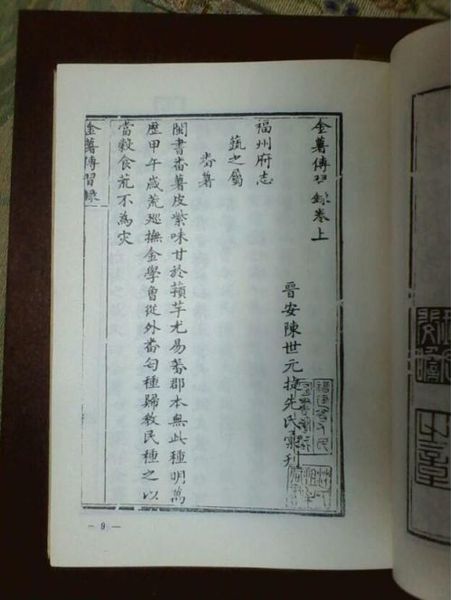 金薯傳習錄卷上
晉安陳世元捷先氏彙刊
福州府志
蔬之屬
番薯
閩書番薯皮紫味甘於薯芋尤易蕃郡本無此種明萬
歷甲午歲荒巡撫金學曾從外番匄種歸教民種之以
當穀食荒不為災
金薯傳習錄
— 9 —
之章